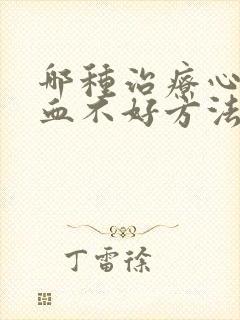 那種治療心
血不好方法
丁雷徐